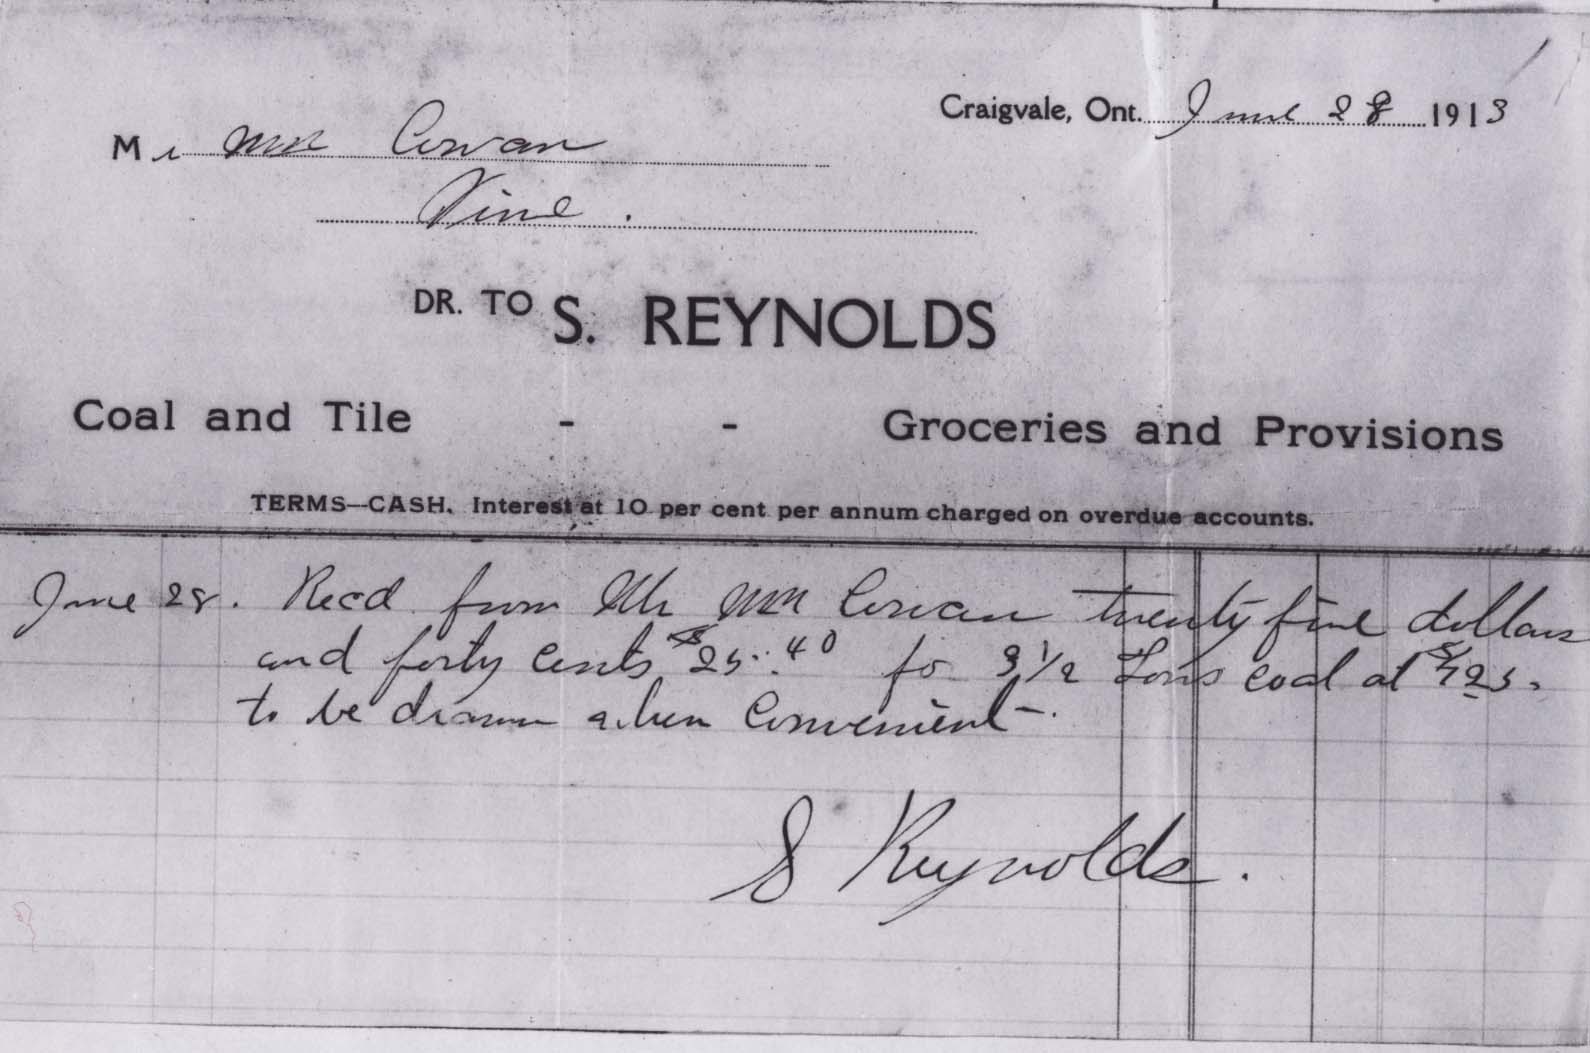 Craigvale, Ont. June 28 1913
Mr Wm Cowan
Vine.
DR. TO S. REYNOLDS
Coal and Tile - - Groceries and Provisions
TERMS—CASH. Interest at 10 per cent per annum charged on overdue accounts.
June 28. Recd from Mr Wm Cowan twenty five dollars
and forty cents $25.40 for 3 1/2 Tons coal at $725.
to be drawn when Convenient-.
S Reynolds.